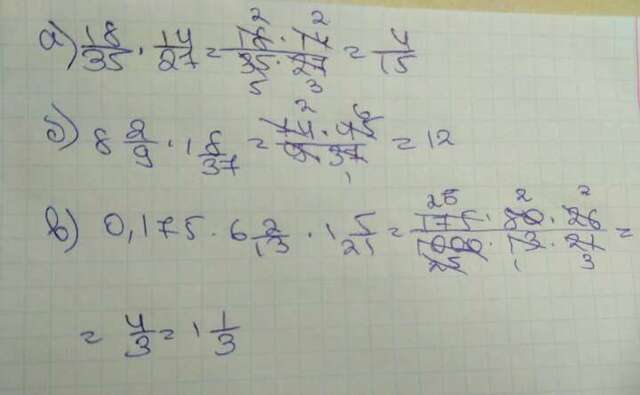 а) 18/35 · 14/27 = 18 · 14 / 35 · 27 = 4/15
2 2
5 3
б) 8 2/9 · 1 8/37 = 74 · 45 / 9 · 37 = 12
2
1
в) 0,175 · 6 2/13 · 1 5/21 = 175 · 80 · 26 / 1000 · 13 · 21 =
25 2 2
25 1 3
= 4/3 = 1 1/3